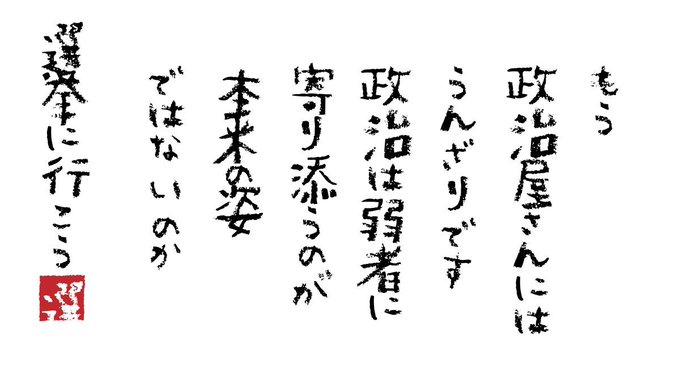 もう
政治屋さんには
うんざりです
政治は弱者に
寄り添うのが
本来の姿
ではないのか
選挙に行こう
選